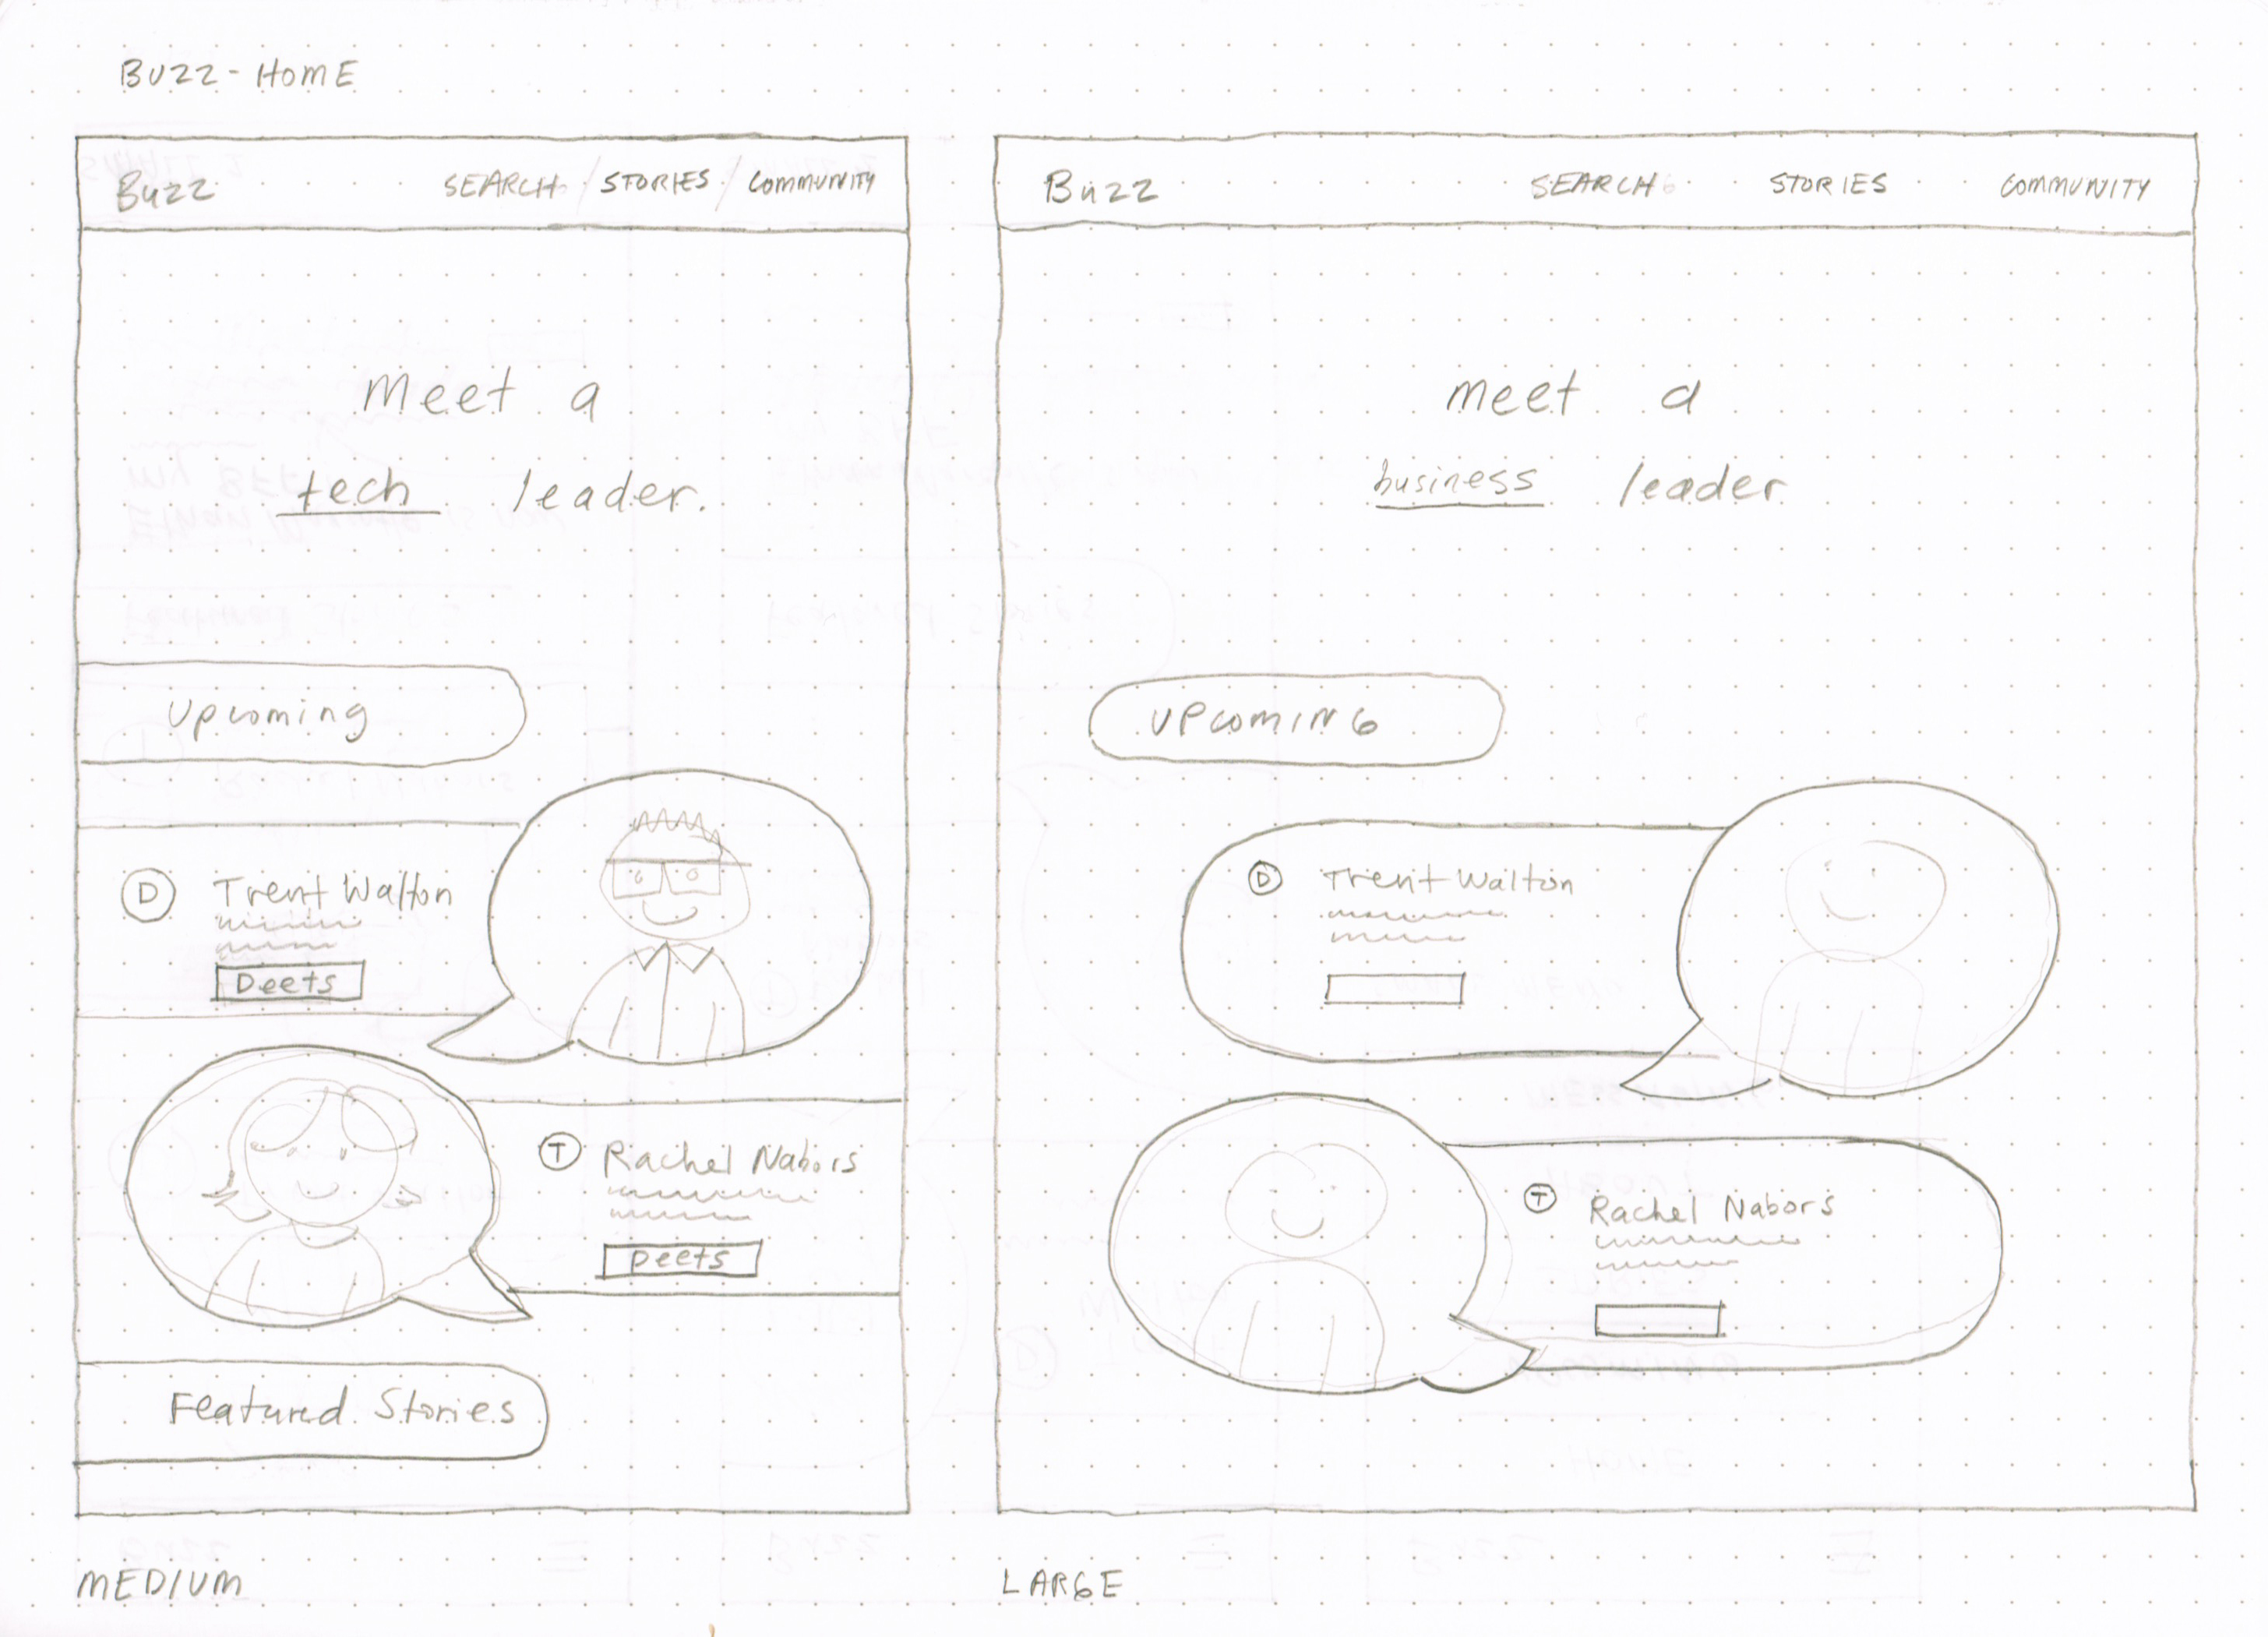 BUZZ - HOME
Buzz SEARCH / STORIES / COMMUNITY
Meet a
tech leader.
Upcoming
D Trent Walton
Deets
T Rachel Nabors
Deets
Featured Stories
MEDIUM
Buzz SEARCH STORIES COMMUNITY
meet a
business leader
UPCOMING
D Trent Walton
T Rachel Nabors
LARGE